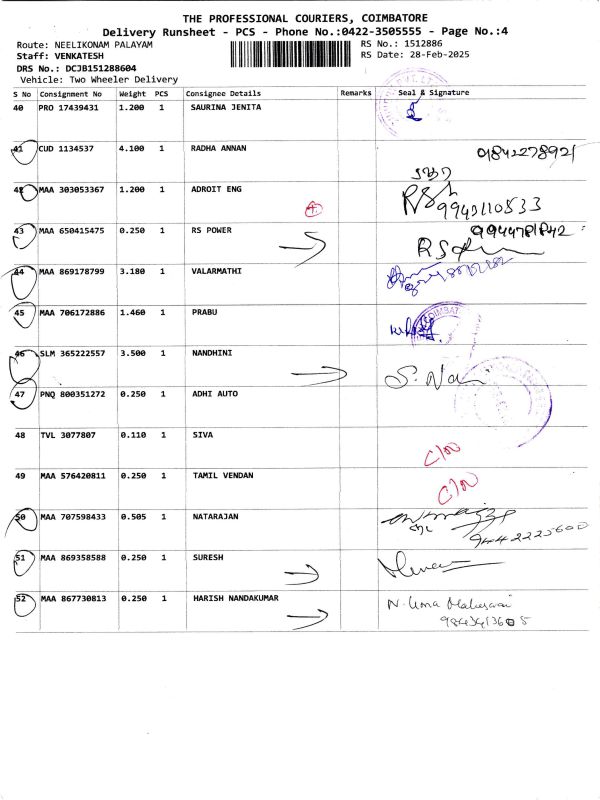 THE PROFESSIONAL COURIERS, COIMBATORE
Delivery Runsheet - PCS - Phone No.:0422-3505555 - Page No.:4
Route: NEELIKONAM PALAYAM
RS No.: 1512886
Staff: VENKATESH
RS Date: 28-Feb-2025
DRS No.: DCJB151288604
Vehicle: Two Wheeler Delivery
S No Consignment No Weight PCS Consignee Details Remarks Seal & Signature
40 PRO 17439431 1.200 1 SAURINA JENITA
41 CUD 1134537 4.100 1 RADHA ANNAN
42 MAA 303053367 1.200 1 ADROIT ENG 9943110533
43 MAA 650415475 0.250 1 RS POWER
44 MAA 869178799 3.180 1 VALARMATHI
45 MAA 706172886 1.460 1 PRABU
46 SLM 365222557 3.500 1 NANDHINI S. Nan
47 PNQ 800351272 0.250 1 ADHI AUTO
48 TVL 3077807 0.110 1 SIVA C/N
49 MAA 576420811 0.250 1 TAMIL VENDAN C/N
50 MAA 707598433 0.505 1 NATARAJAN
51 MAA 869358588 0.250 1 SURESH
52 MAA 867730813 0.250 1 HARISH NANDAKUMAR N. Uma Maheswari